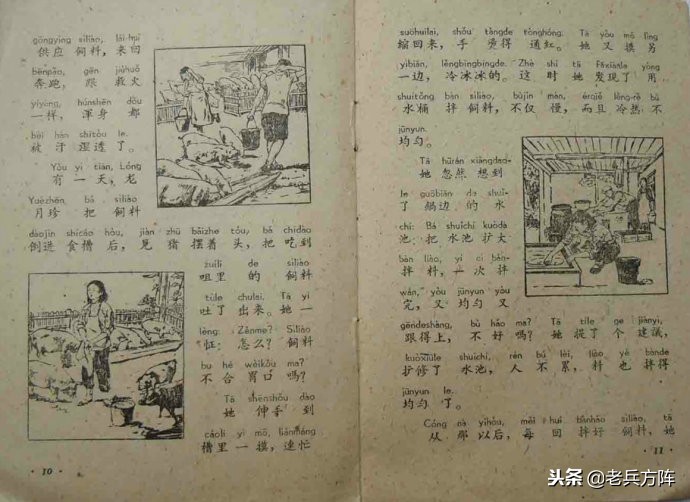 gōngyìng sìliào, lái-huí
供应 飼料，来回
bēnpǎo, gēn jiùhuǒ
奔跑，跟 救火
yíyàng, húnshēn dōu
一样，渾身 都
bèi hàn shītòu le.
被 汗 湿透 了。
Yǒu yì tiān, Lóng
有 一 天，龙
Yuèzhēn bǎ sìliào
月珍 把 飼料
dàojìn shícáo hòu, jiàn zhū bǎizhe tóu, bǎ chīdào
倒进 食槽 后，見 猪 摆着 头，把 吃到
zuǐlǐ de sìliào
咀里 的 飼料
tǔle chulai. Tā yí
吐了 出来。她 一
lèng: Zěnme? Sìliào
怔：怎么？飼料
bù hé wèikǒu ma?
不 合 胃口 嗎？
Tā shēnshǒu dào
她 伸手 到
cáoli yì mō, liánmáng
槽里 一 摸，連忙
·10·
suōhuilai, shǒu tàngde tōnghóng. Tā yòu mō lìng
縮回来，手 烫得 通紅。她 又 摸 另
yìbiān, lěngbīngbīngde. Zhè shí tā fāxiànle yòng
一边，冷冰冰的。这 时 她 发現了 用
shuǐtǒng bàn sìliào, bùjǐn màn, érqiě lěng-rè bù
水桶 拌 飼料，不仅 慢，而且 冷热 不
jūnyún.
均匀。
Tā hūrán xiǎngdao-
她 忽然 想到
le guōbiān de shuǐ-
了 鍋边 的 水
chí: Bǎ shuǐchí kuòdà
池：把 水池 扩大
bàn liào, yí cì bàn-
拌 料，一 次 拌
wán, yòu jūnyún yòu
完，又 均匀 又
gēndeshàng, bù hǎo ma? Tā tíle ge jiànyì,
跟得上，不 好 嗎？她 提了 个 建議，
kuòxiūle shuǐchí, rén bú lèi, liào yě bànde
扩修了 水池，人 不 累，料 也 拌得
jūnyun le.
均匀 了。
Cóng nà yǐhòu, měi huí bànhǎo sìliào, tā
从 那 以后，每 回 拌好 飼料，她
·11·
头条 @老兵方阵